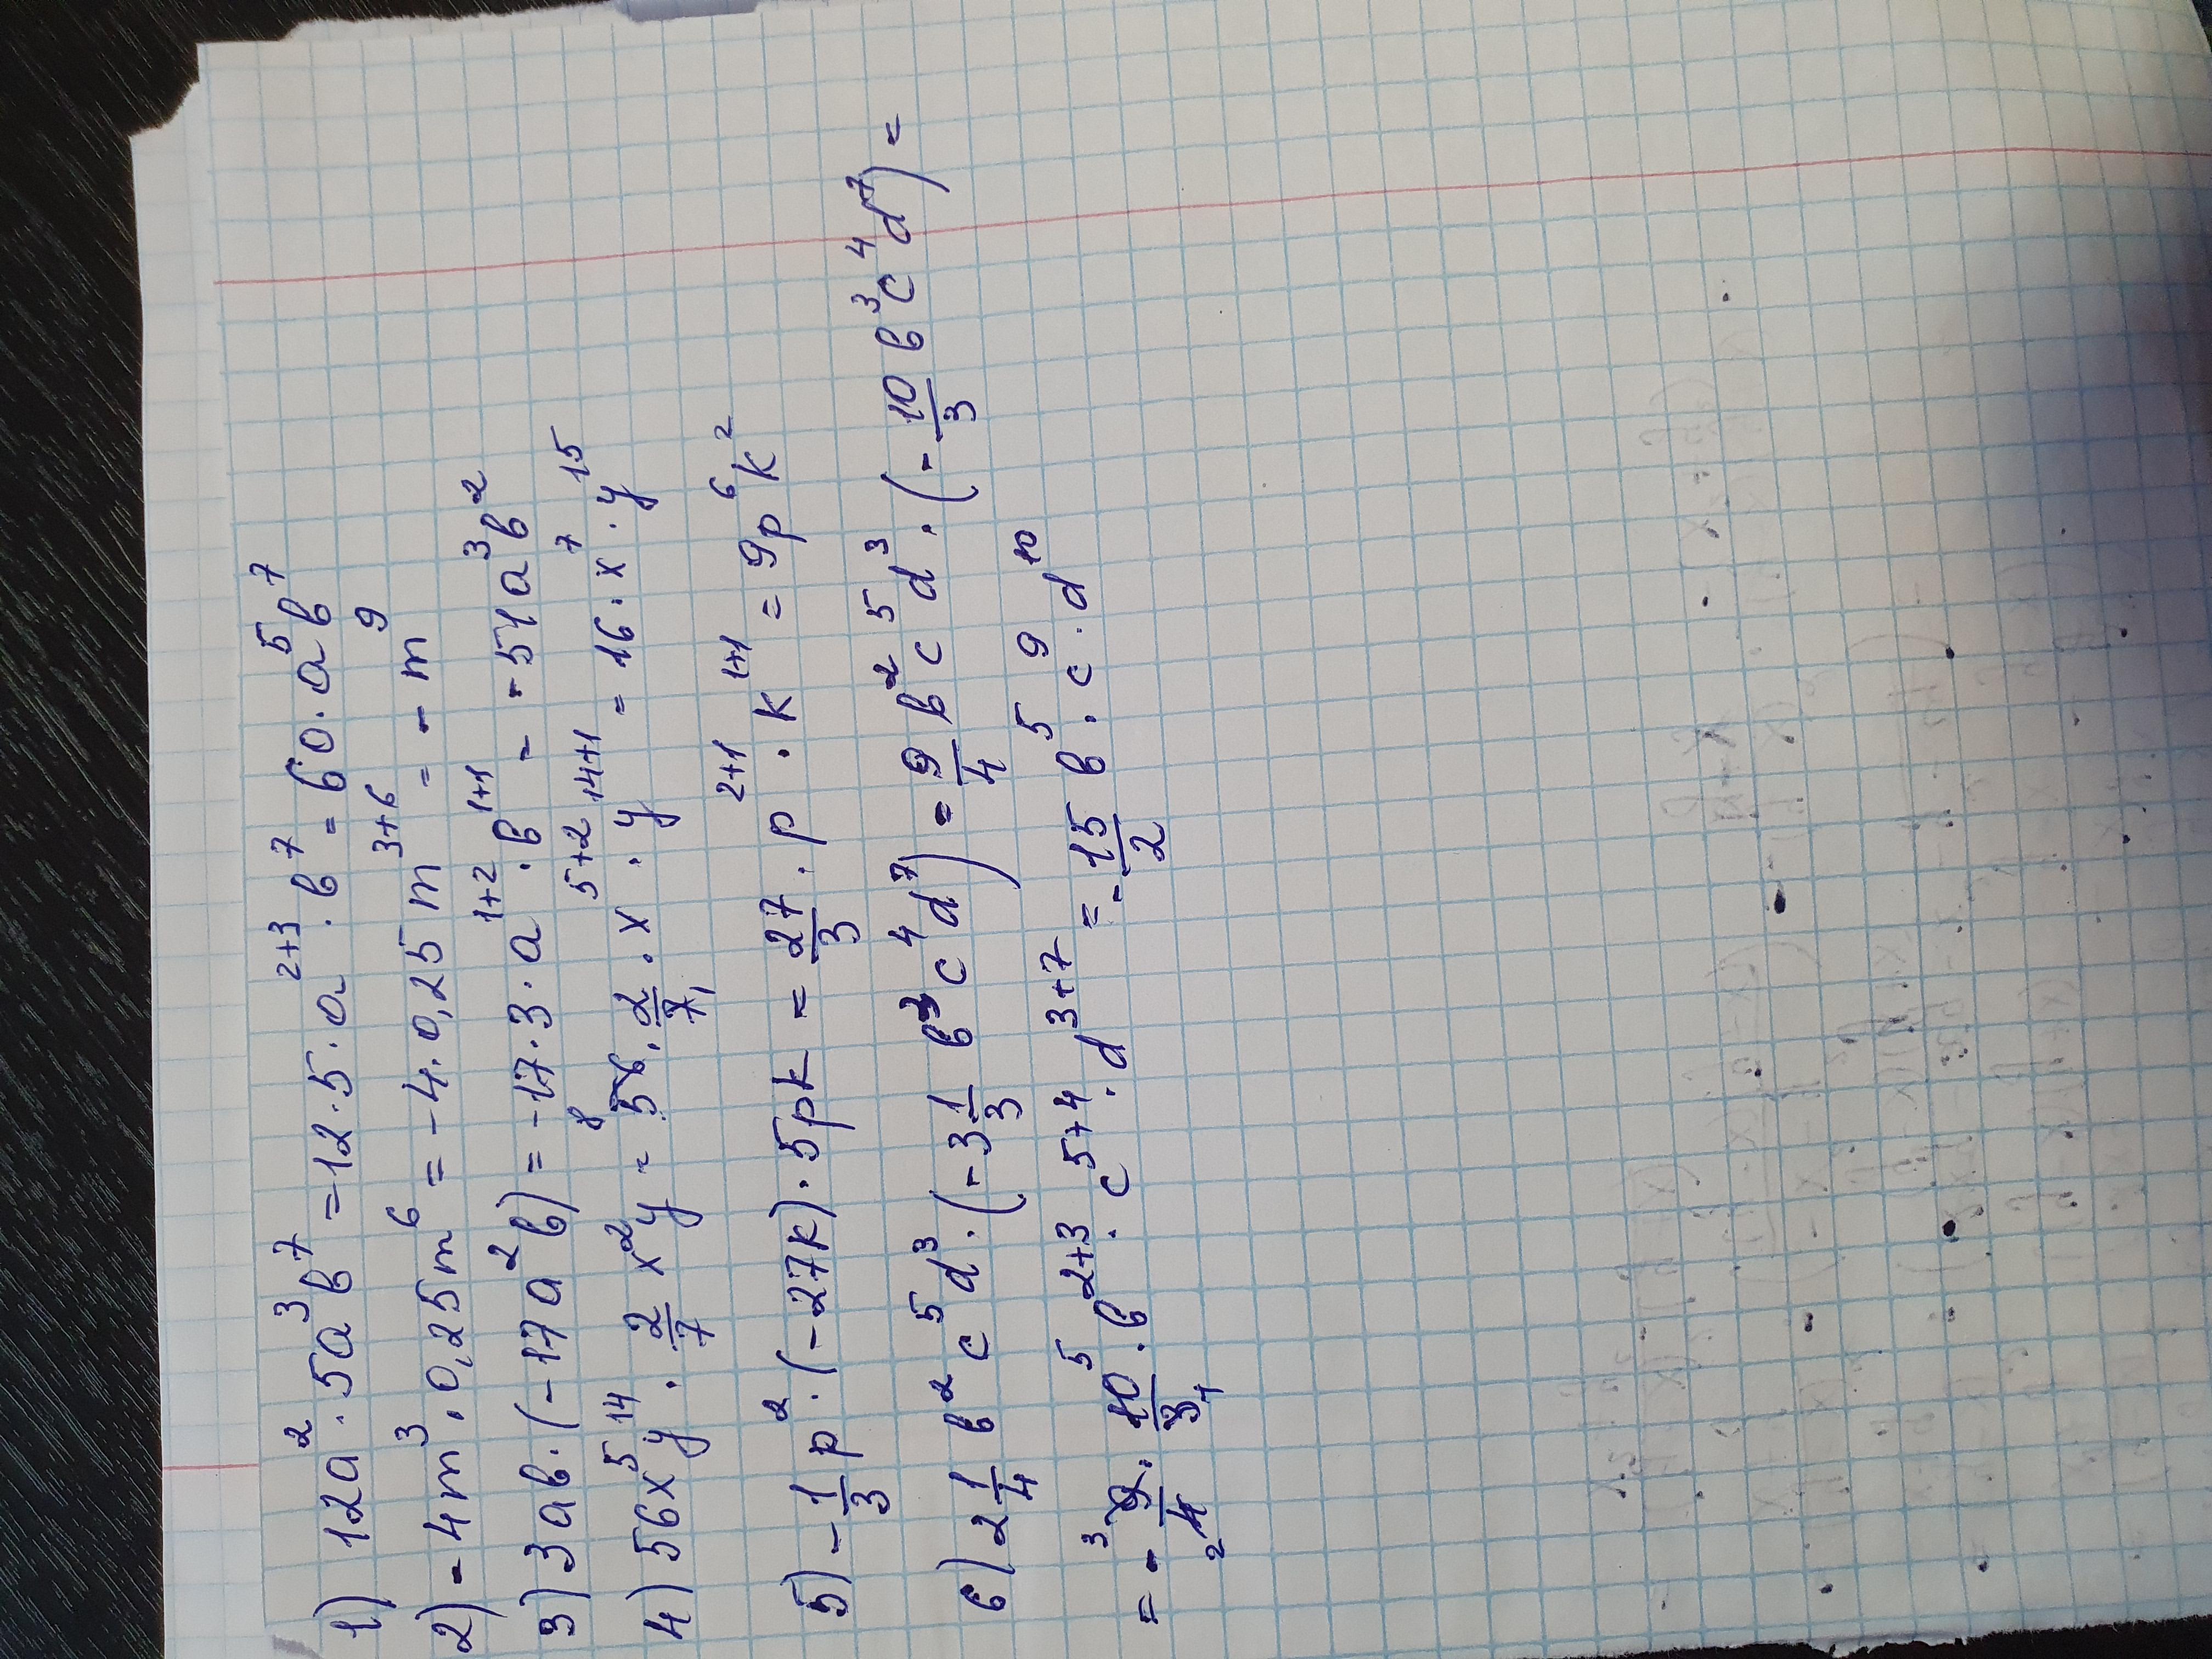 1) 12a² · 5a³b⁷ = 12 · 5 · a²⁺³ · b⁷ = 60 · a⁵b⁷
2) -4m³ · 0,25m⁶ = -4 · 0,25 m³⁺⁶ = -m⁹
3) 3ab · (-17a²b) = -17 · 3 · a¹⁺² · b¹⁺¹ = -51a³b²
4) 56x⁵y¹⁴ · 2/7 x²y = 56⁸ · 2/7₁ · x⁵⁺² · y¹⁴⁺¹ = 16 · x⁷ · y¹⁵
5) -1/3 p² · (-27k) · 5pk = 27/3 · p²⁺¹ · k¹⁺¹ = 9p⁶k²
6) 2 1/4 b²c⁵d³ · (-3 1/3 b³c⁴d⁷) = 9/4 b²c⁵d³ · (-10/3 b³c⁴d⁷) =
= - ³9/₂4 · 10⁵/3₁ · b²⁺³ · c⁵⁺⁴ · d³⁺⁷ = -15/2 b⁵ · c⁹ · d¹⁰